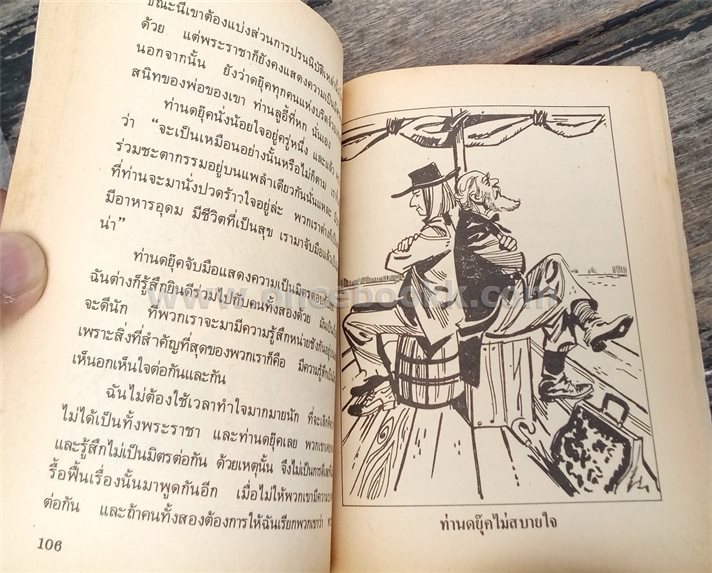 ขณะนี้เขาต้องแบ่งส่วนการปรนนิบัติ
ด้วย แต่พระราชาก็ยังคงแสดงความ
นอกจากนั้น ยังว่าดยุ๊คทุกคนแห่ง
สนิทของพ่อของเขา ท่านลูอี้ที่หก นั่นเอง
ท่านดยุ๊คนั่งน้อยใจอยู่ครู่หนึ่ง และแล้ว
ว่า “จะเป็นเหมือนอย่างนั้นหรือไม่ก็ตาม
ร่วมชะตากรรมอยู่บนแพลำเดียวกันนั่นแหละ
ที่ท่านจะมานั่งปวดร้าวใจอยู่ล่ะ พวกเรา
มีอาหารอุดม มีชีวิตที่เป็นสุข เรามาจับมือ
น่า”
ท่านดยุ๊คจับมือแสดงความเป็นมิตร
ฉันต่างก็รู้สึกยินดีรวมไปกับคนทั้งสองด้วย
จะดีนัก ที่พวกเราจะมามีความรู้สึกหน่ายชังกัน
เพราะสิ่งที่สำคัญที่สุดของพวกเราก็คือ มีความรู้สึก
เห็นอกเห็นใจต่อกันและกัน
ฉันไม่ต้องใช้เวลาทำใจมากมายนัก
ไม่ได้เป็นทั้งพระราชา และท่านดยุ๊คเลย
และรู้สึกไม่เป็นมิตรต่อกัน ด้วยเหตุนั้น จึงไม่เป็นการ
รื้อฟื้นเรื่องนั้นมาพูดกันอีก เมื่อไม่ให้พวกเขามีความ
ต่อกัน และถ้าคนทั้งสองต้องการให้ฉันเรียกพวกเขาว่า
106
ท่านดยุ๊คไม่สบายใจ